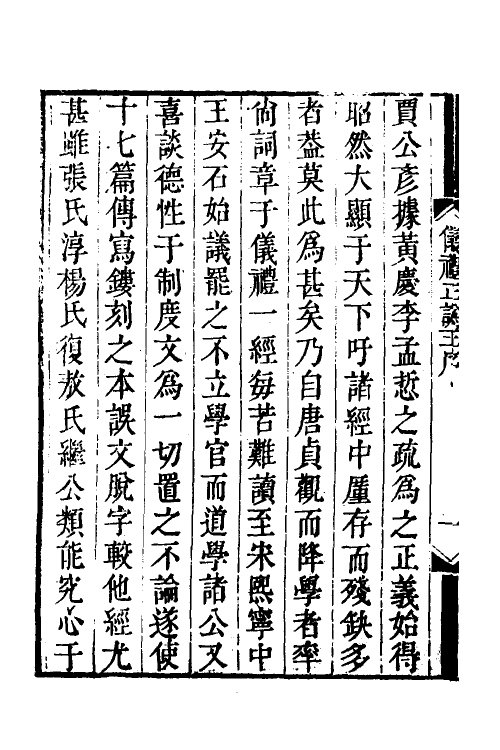 賈公彥據黃慶李孟悊之疏爲之正義始得
昭然大顯于天下吁諸經中厪存而殘缺多
者葢莫此爲甚矣乃自唐貞觀而降學者率
尙詞章于儀禮一經每苦難讀至宋熙寧中
王安石始議罷之不立學官而道學諸公又
喜談德性于制度文爲一切置之不論遂使
十七篇傳寫鏤刻之本誤文脫字較他經尤
甚雖張氏淳楊氏復敖氏繼公類能究心于
儀禮正譌王序
一